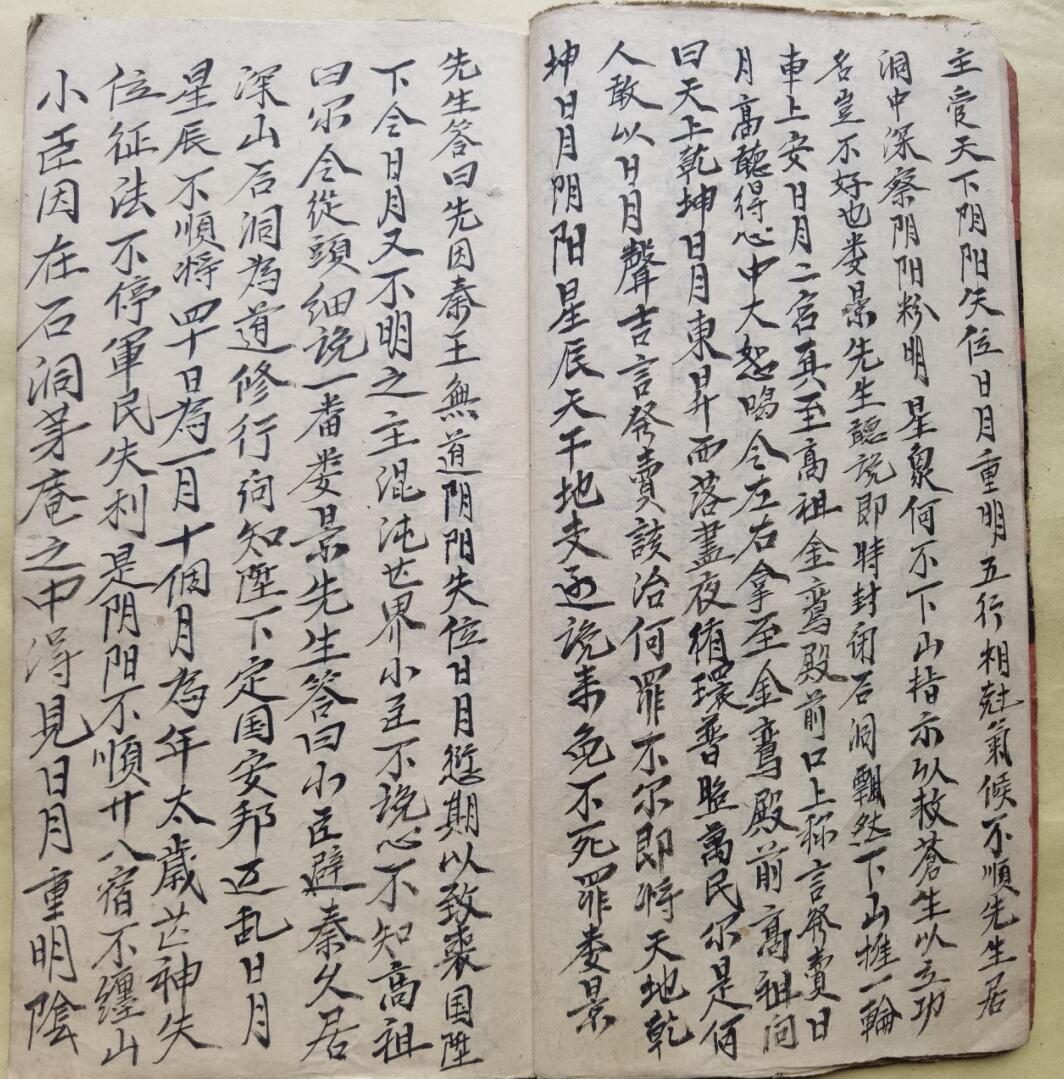 主受天下阴阳失位日月重明五行相尅氣候不順先生居
洞中深察阴阳粉明星象何不下山指示以救蒼生以立功
名岂不好也娄景先生聽说即時封闭石洞飄然下山推一輪
車上安日月二宫真至高祖金鸾殿前口上称言發賣日
月高聽得心中大怒喝令左右拿至金鸾殿前高祖问
曰天上乾坤日月東昇西落晝夜循環普照萬民尔是何
人敢以日月聲吉言發賣該治何罪不尔即将天地乾
坤日月阴阳星辰天干地支逐说来免不死罪娄景
先生答曰先因秦王無道阴阳失位日月愆期以致衰国陛
下令日月又不明之主混沌世界小臣不说心不知高祖
曰尔令從頭细说一番娄景先生答曰小臣避秦久居
深山石洞為道修行问知陛下定国安邦迈乱日月
星辰不順将四十日為一月十個月為年太歲芒神失
位征法不停軍民失利是阴阳不順廿八宿不纏山
小臣因在石洞茅庵之中得見日月重明陰